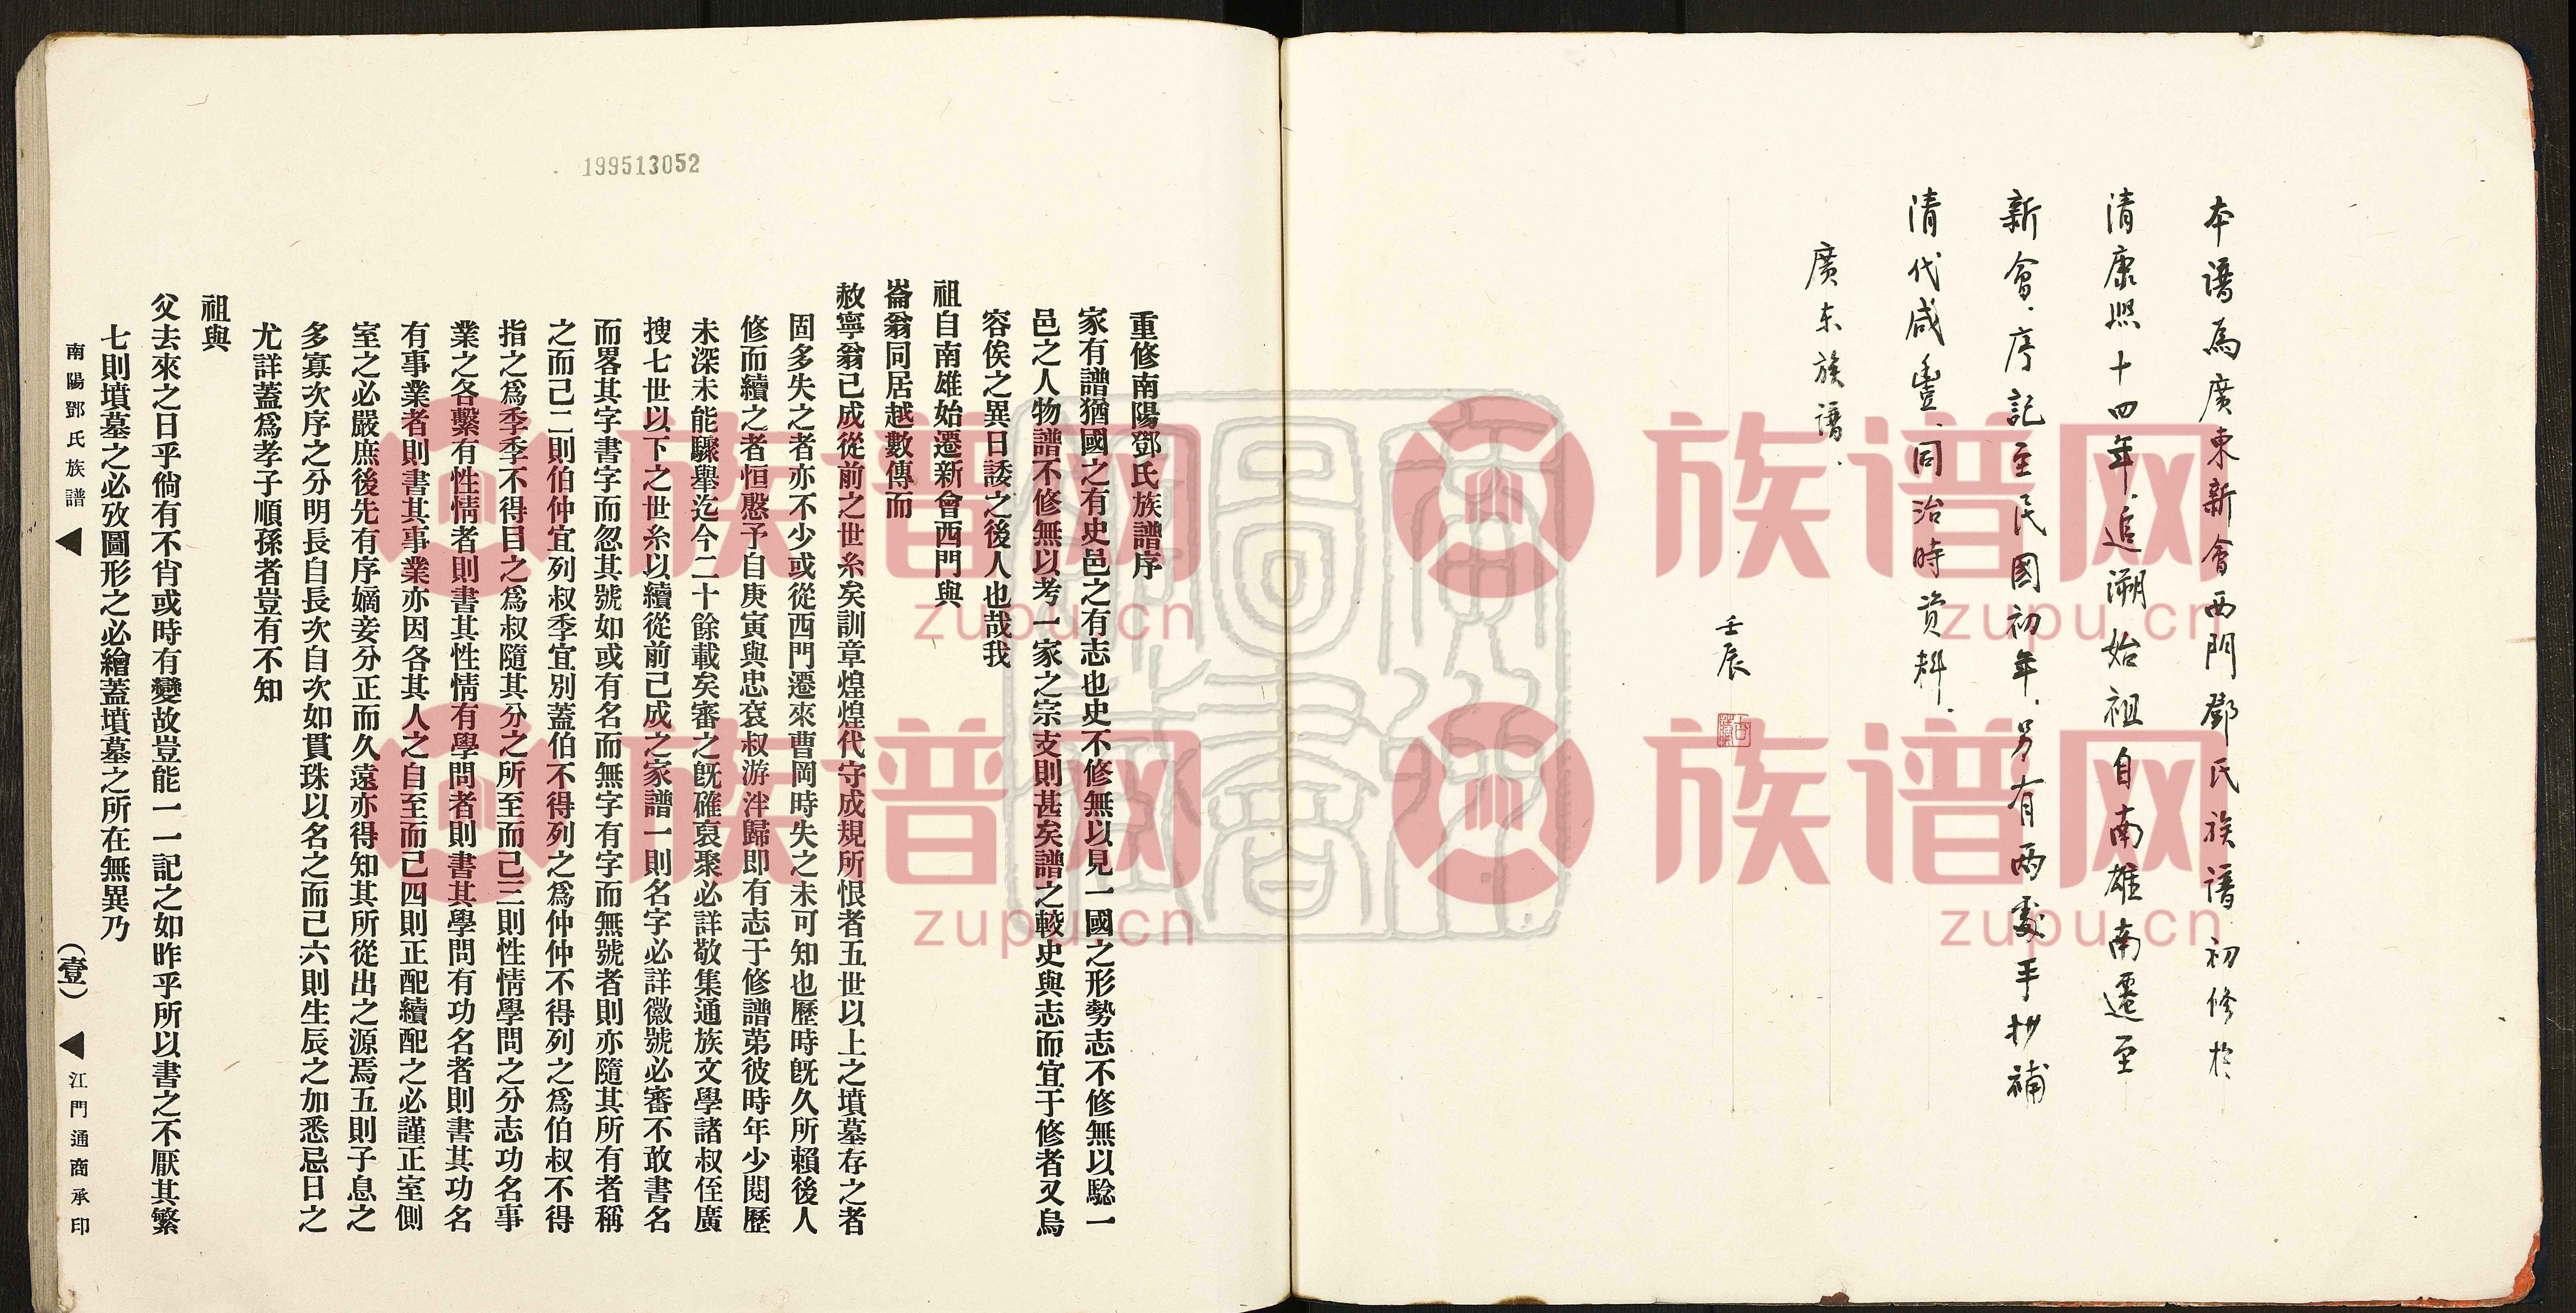 本譜為廣東新會西門鄧氏族譜.初修於
清康熙十四年.追溯始祖自南雄南遷至
新會.序記至民國初年.另有兩處手抄補
清代咸豐.同治時資料.
廣东族譜.
壬辰
199513052
重修南陽鄧氏族譜序
家有譜猶國之有史邑之有志也史不修無以見一國之形勢志不修無以騐一
邑之人物譜不修無以考一家之宗支則甚矣譜之較史與志而宜于修者又烏
容俟之異日諉之後人也哉我
祖自南雄始遷新會西門與
崙翁同居越數傳而
赦寧翁已成從前之世糸矣訓章煌煌代守成規所恨者五世以上之墳墓存之者
固多失之者亦不少或從西門遷來曹岡時失之未可知也歷時旣久所賴後人
修而續之者恒慇予自庚寅與忠袞叔游泮歸即有志于修譜苐彼時年少閱歷
未深未能驟舉迄今二十餘載矣審之旣確裒聚必詳敬集通族文學諸叔侄廣
搜七世以下之世糸以續從前已成之家譜一則名字必詳徽號必審不敢書名
而畧其字書字而忽其號如或有名而無字有字而無號者則亦隨其所有者稱
之而已二則伯仲宜列叔季宜別蓋伯不得列之爲仲仲不得列之爲伯叔不得
指之爲季季不得目之爲叔隨其分之所至而已三則性情學問之分志功名事
業之各繫有性情者則書其性情有學問者則書其學問有功名者則書其功名
有事業者則書其事業亦因各其人之自至而已四則正配續配之必謹正室側
室之必嚴庶後先有序嫡妾分正而久遠亦得知其所從出之源焉五則子息之
多寡次序之分明長自長次自次如貫珠以名之而已六則生辰之加悉忌日之
尤詳蓋爲孝子順孫者豈有不知
祖與
父去來之日乎倘有不肖或時有變故豈能一一記之如昨乎所以書之不厭其繁
七則墳墓之必攷圖形之必繪蓋墳墓之所在無異乃
南陽鄧氏族譜 (壹) 江門通商承印
族谱网
zupu.cn
族谱网
zupu.cn
族谱网
zupu.cn
族谱网
zupu.cn